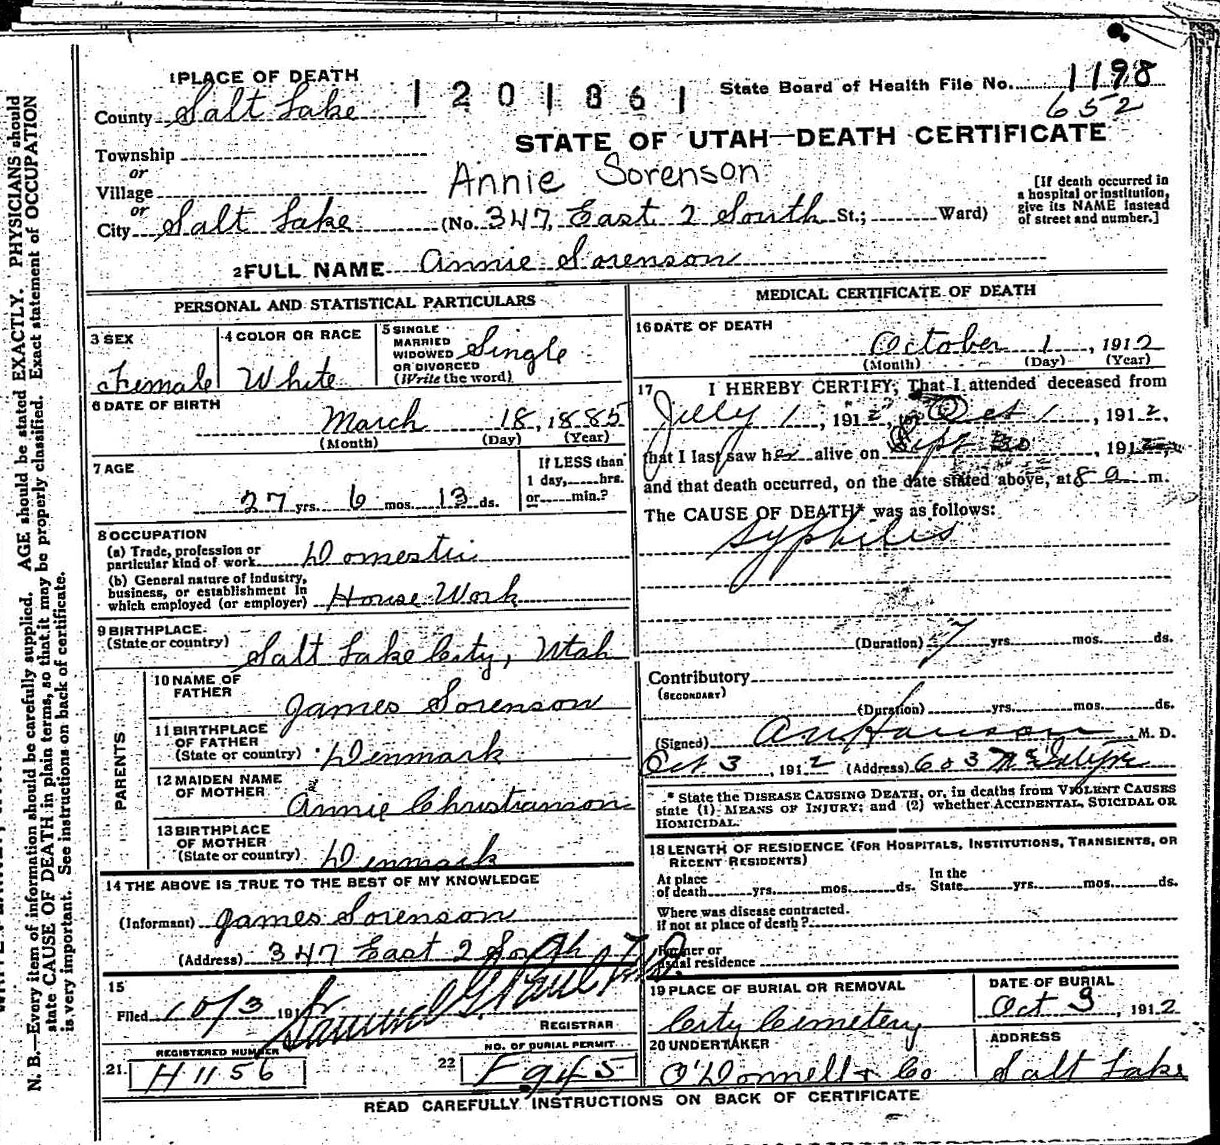 1 PLACE OF DEATH
County Salt Lake
1201861
State Board of Health File No. 1198
652
STATE OF UTAH—DEATH CERTIFICATE
Township
or
Village
or
Annie Sorenson
[If death occurred in a hospital or institution, give its NAME instead of street and number.]
City Salt Lake (No. 347, East 2 South St.; Ward)
2 FULL NAME Annie Sorenson
PERSONAL AND STATISTICAL PARTICULARS
3 SEX
Female
4 COLOR OR RACE
White
5 SINGLE
MARRIED
WIDOWED
OR DIVORCED
(Write the word)
Single
6 DATE OF BIRTH
March 18, 1885
(Month) (Day) (Year)
7 AGE
27 yrs. 6 mos. 13 ds.
If LESS than
1 day, hrs.
or min.?
8 OCCUPATION
(a) Trade, profession or
particular kind of work Domestic
(b) General nature of Industry,
business, or establishment in
which employed (or employer) House Work
9 BIRTHPLACE
(State or country) Salt Lake City, Utah
PARENTS
10 NAME OF
FATHER
James Sorenson
11 BIRTHPLACE
OF FATHER
(State or country) Denmark
12 MAIDEN NAME
OF MOTHER
Annie Christianson
13 BIRTHPLACE
OF MOTHER
(State or country) Denmark
14 THE ABOVE IS TRUE TO THE BEST OF MY KNOWLEDGE
(Informant) James Sorenson
(Address) 347 East 2 South
15
Filed 10/3 191
REGISTRAR
REGISTERED NUMBER
21. H 1156
NO. OF BURIAL PERMIT
22 F 945
MEDICAL CERTIFICATE OF DEATH
16 DATE OF DEATH
October 1, 1912
(Month) (Day) (Year)
17 I HEREBY CERTIFY, That I attended deceased from
July 1, 1912, to Oct 1, 1912,
that I last saw her alive on Sept 30, 1912,
and that death occurred, on the date stated above, at 8 a m.
The CAUSE OF DEATH* was as follows:
Syphilis
(Duration) 7 yrs. mos. ds.
Contributory
(SECONDARY)
(Duration) yrs. mos. ds.
(Signed) M. D.
Oct 3, 1912 (Address) 603 McIntyre
* State the DISEASE CAUSING DEATH, or, in deaths from VIOLENT CAUSES
state (1) MEANS OF INJURY; and (2) whether ACCIDENTAL, SUICIDAL OR
HOMICIDAL.
18 LENGTH OF RESIDENCE (FOR HOSPITALS, INSTITUTIONS, TRANSIENTS, OR
RECENT RESIDENTS)
At place
of death yrs. mos. ds.
In the
State yrs. mos. ds.
Where was disease contracted.
If not at place of death?
Former or
usual residence
19 PLACE OF BURIAL OR REMOVAL
City Cemetery
DATE OF BURIAL
Oct 3, 1912
20 UNDERTAKER
O'Donnell & Co
ADDRESS
Salt Lake
READ CAREFULLY INSTRUCTIONS ON BACK OF CERTIFICATE
N. B.—Every item of information should be carefully supplied. AGE should be stated EXACTLY. PHYSICIANS should
state CAUSE OF DEATH in plain terms, so that it may be properly classified. Exact statement of OCCUPATION
is very important. See instructions on back of certificate.